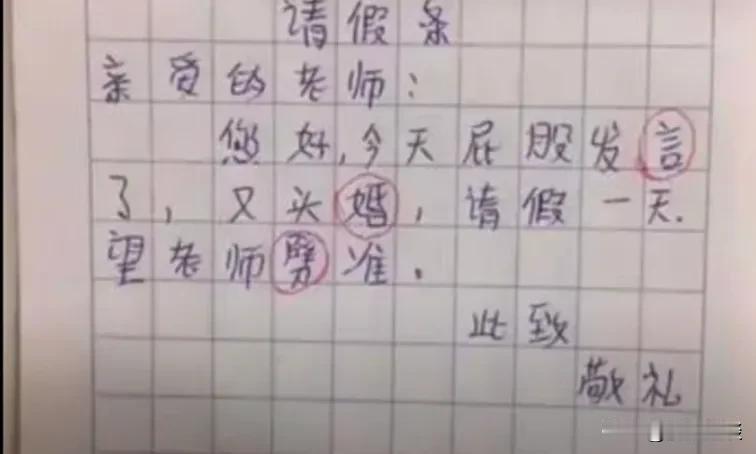 请假条
亲爱的老师：
您好，今天屁股发言
了，又头婚，请假一天.
望老师劈准.
此致
敬礼